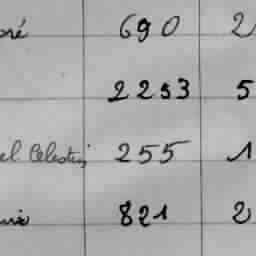 oré 690 2
2253 5
el. Celestin 255 1
821 2